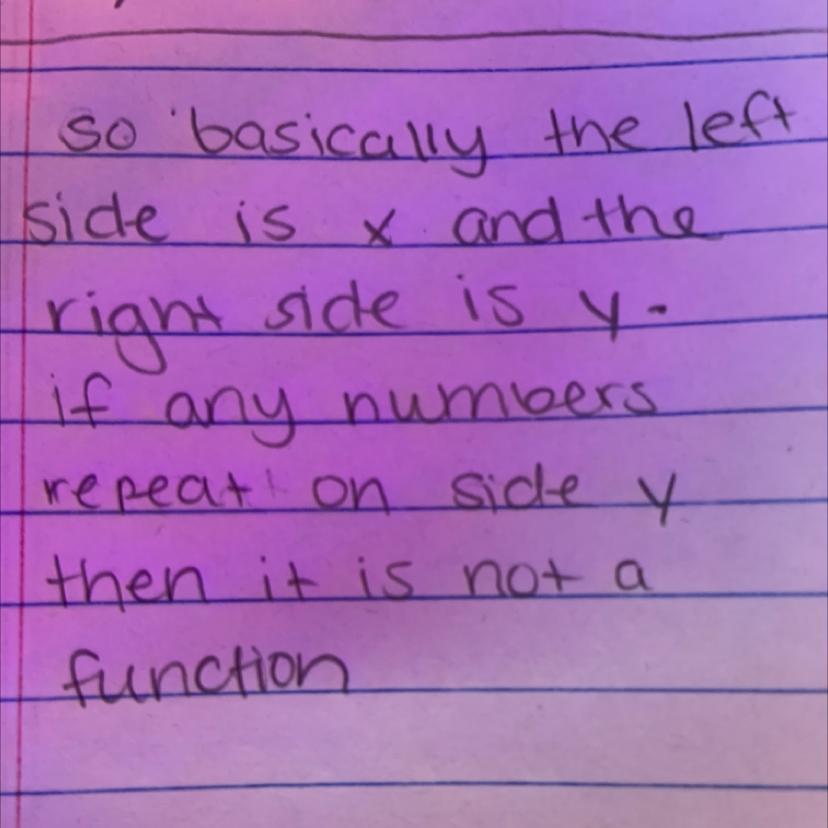 so basically the left
side is x and the
right side is y.
if any numbers
repeat on side y
then it is not a
function